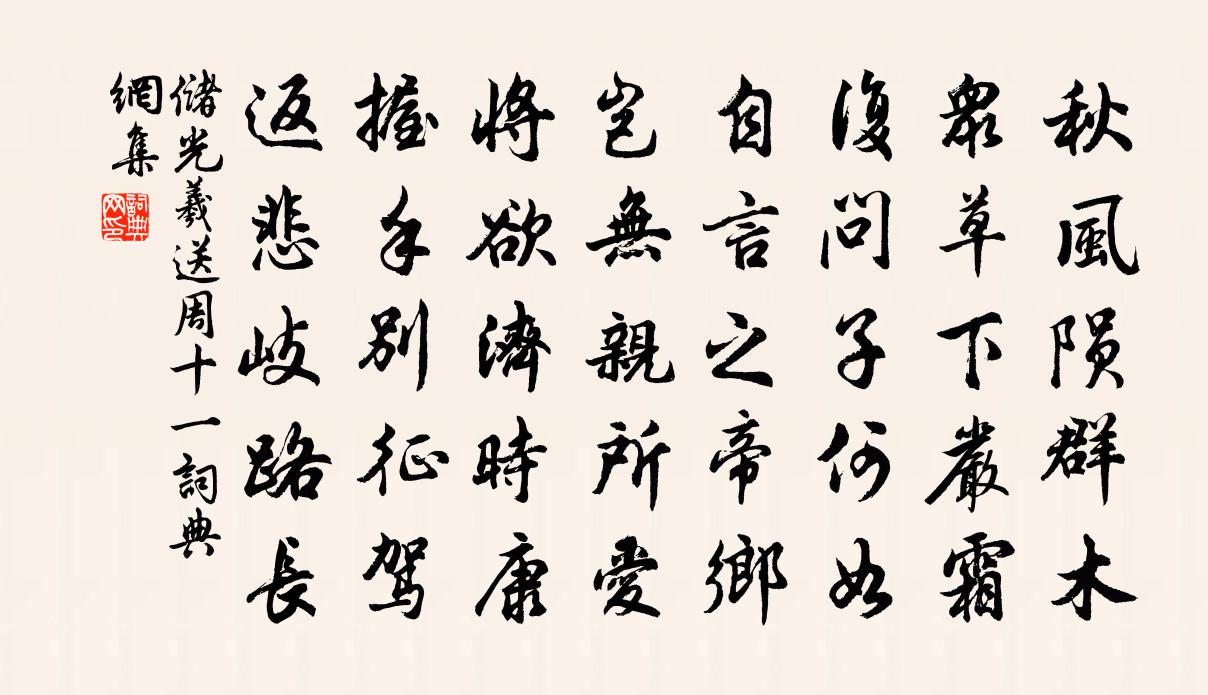 秋風陨群木
眾草下嚴霜
復問子何如
自言之帝鄉
豈無親所愛
將欲濟時康
握手別征駕
返悲岐路長
儲光羲送周十一詞典
網集
詞典
网印